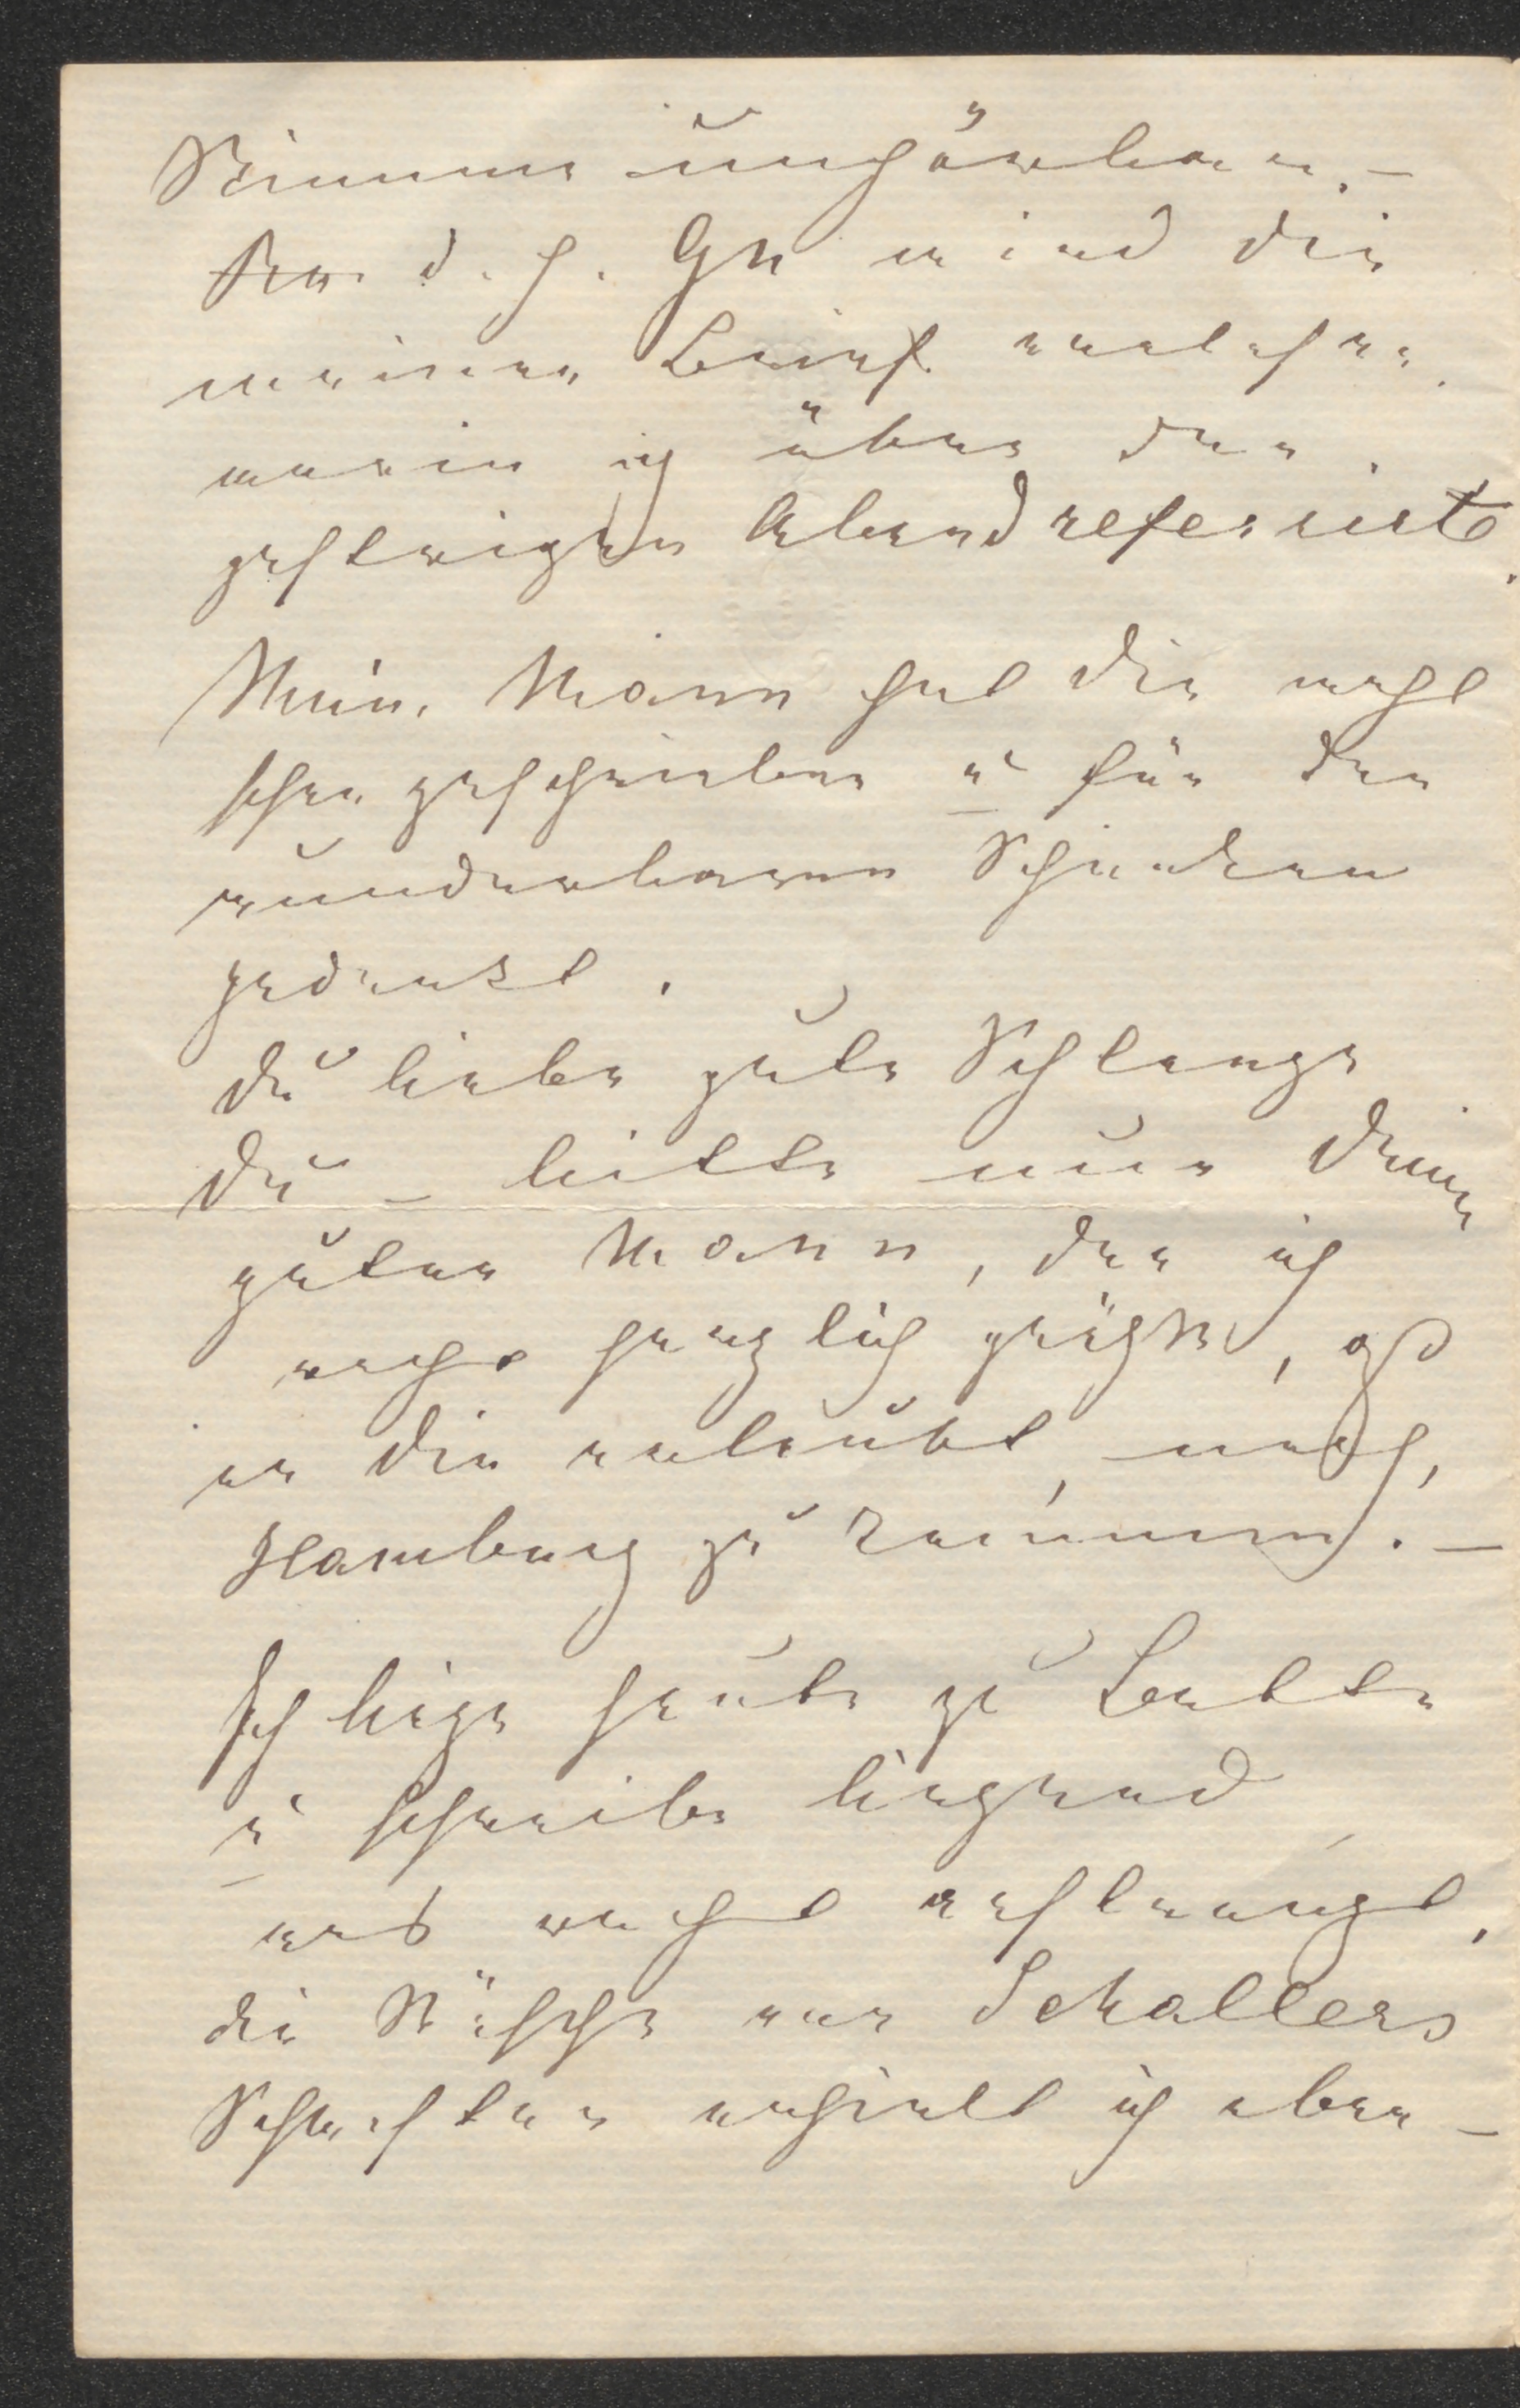 Stimme unhörbar. –
d. h. Gr wird dir
meinen Brief vorlesen,
worin ich über den
gestrigen Abend referirte.
Mein Mann hat dir wohl
schon geschrieben u für den
wunderbaren Schinken
gedankt.
du liebe gute Schlange
du – bitte nur Deinen
guten Mann, den ich
recht herzlich grüße, daß
er dir erlaubt, nach
Hamburg zu kommen. –
Ich liege heute zu Bette
u schreibe liegend
was recht anstrengt,
die Wäsche von Schallers
Schwester erhielt ich eben –